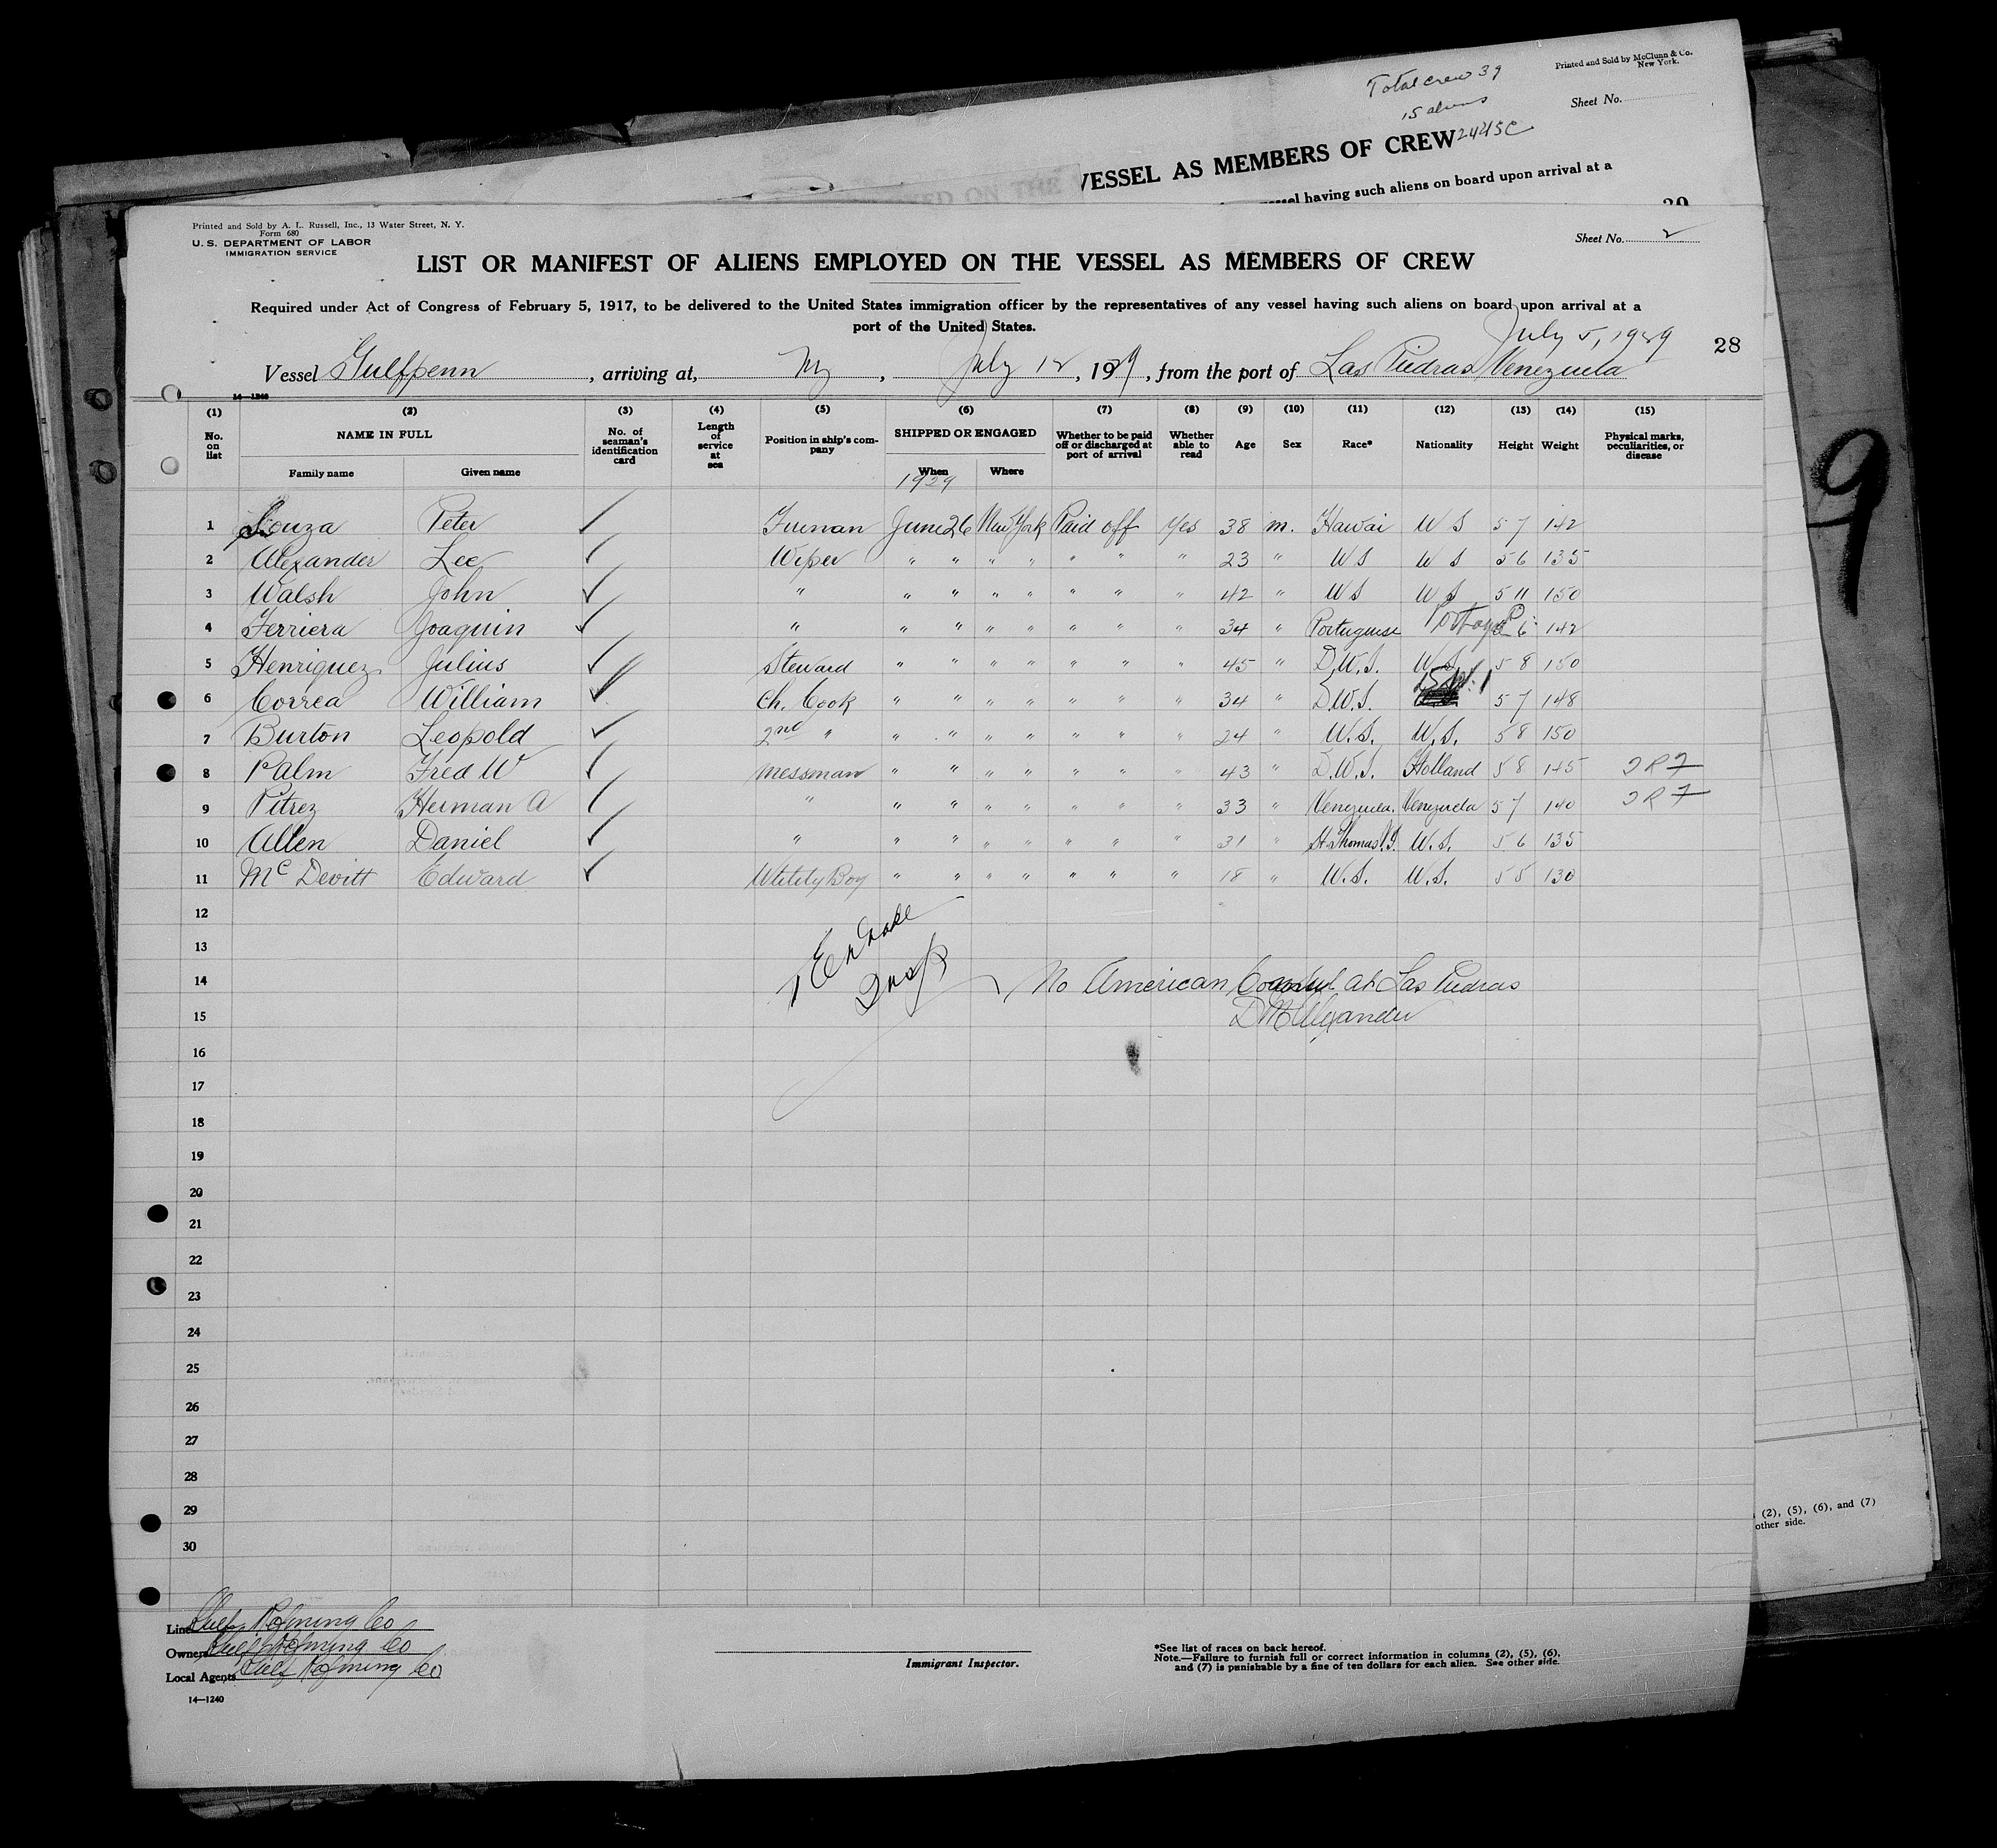 Total crew 39
Printed and Sold by McClunn & Co.
New York.
15 aliens
Sheet No.
VESSEL AS MEMBERS OF CREW
having such aliens on board upon arrival at a
Printed and Sold by A. L. Russell, Inc., 13 Water Street, N. Y.
Form 680
U. S. DEPARTMENT OF LABOR
IMMIGRATION SERVICE
Sheet No. 2
LIST OR MANIFEST OF ALIENS EMPLOYED ON THE VESSEL AS MEMBERS OF CREW
Required under Act of Congress of February 5, 1917, to be delivered to the United States immigration officer by the representatives of any vessel having such aliens on board upon arrival at a
port of the United States.
July 5, 1929
28
Vessel Gulfpenn, arriving at, NY, July 12, 1929, from the port of Las Piedras Venezuela
14—1240
(1) (2) (3) (4) (5) (6) (7) (8) (9) (10) (11) (12) (13) (14) (15)
No. on list NAME IN FULL Family name Given name No. of seaman's identification card Length of service at sea Position in ship's company SHIPPED OR ENGAGED When Where Whether to be paid off or discharged at port of arrival Whether able to read Age Sex Race* Nationality Height Weight Physical marks, peculiarities, or disease
1929
1 Souza Peter ✓ Fireman June 26 New York Paid off Yes 38 m. Hawai U S 5 7 142
2 Alexander Lee ✓ Wiper " " " " " " " 23 " U S U S 5 6 135
3 Walsh John ✓ " " " " " " " " 42 " U S U S 5 11 150
4 Ferriera Joaquin ✓ " " " " " " " " 34 " Portuguese Portugal 5 6 142
5 Henriquez Julius ✓ Steward " " " " " " " 45 " D.W.I. U.S. 5 8 150
6 Correa William ✓ Ch. Cook " " " " " " " 34 " D.W.I. 5 7 148
7 Burton Leopold ✓ 2nd " " " " " " " " 24 " U.S. U.S. 5 8 150
8 Palm Fred W ✓ Messman " " " " " " " 43 " D.W.I. Holland 5 8 145
9 Pitrez Herman A ✓ " " " " " " " " 33 " Venezuela. Venezuela 5 7 140
10 Allen Daniel ✓ " " " " " " " " 31 " St Thomas V.I. U.S. 5 6 135
11 McDevitt Edward ✓ Utility Boy " " " " " " " 18 " U.S. U.S. 5 5 130
12
13
14 No American Consul at Las Piedras
15 D M Alexander
16
17
18
19
20
21
22
23
24
25
26
27
28
29
30
Line Gulf Refining Co
Owners Gulf Refining Co
Local Agents Gulf Refining Co
14—1240
Immigrant Inspector.
*See list of races on back hereof.
Note.—Failure to furnish full or correct information in columns (2), (5), (6),
and (7) is punishable by a fine of ten dollars for each alien. See other side.
(2), (5), (6), and (7)
other side.
9